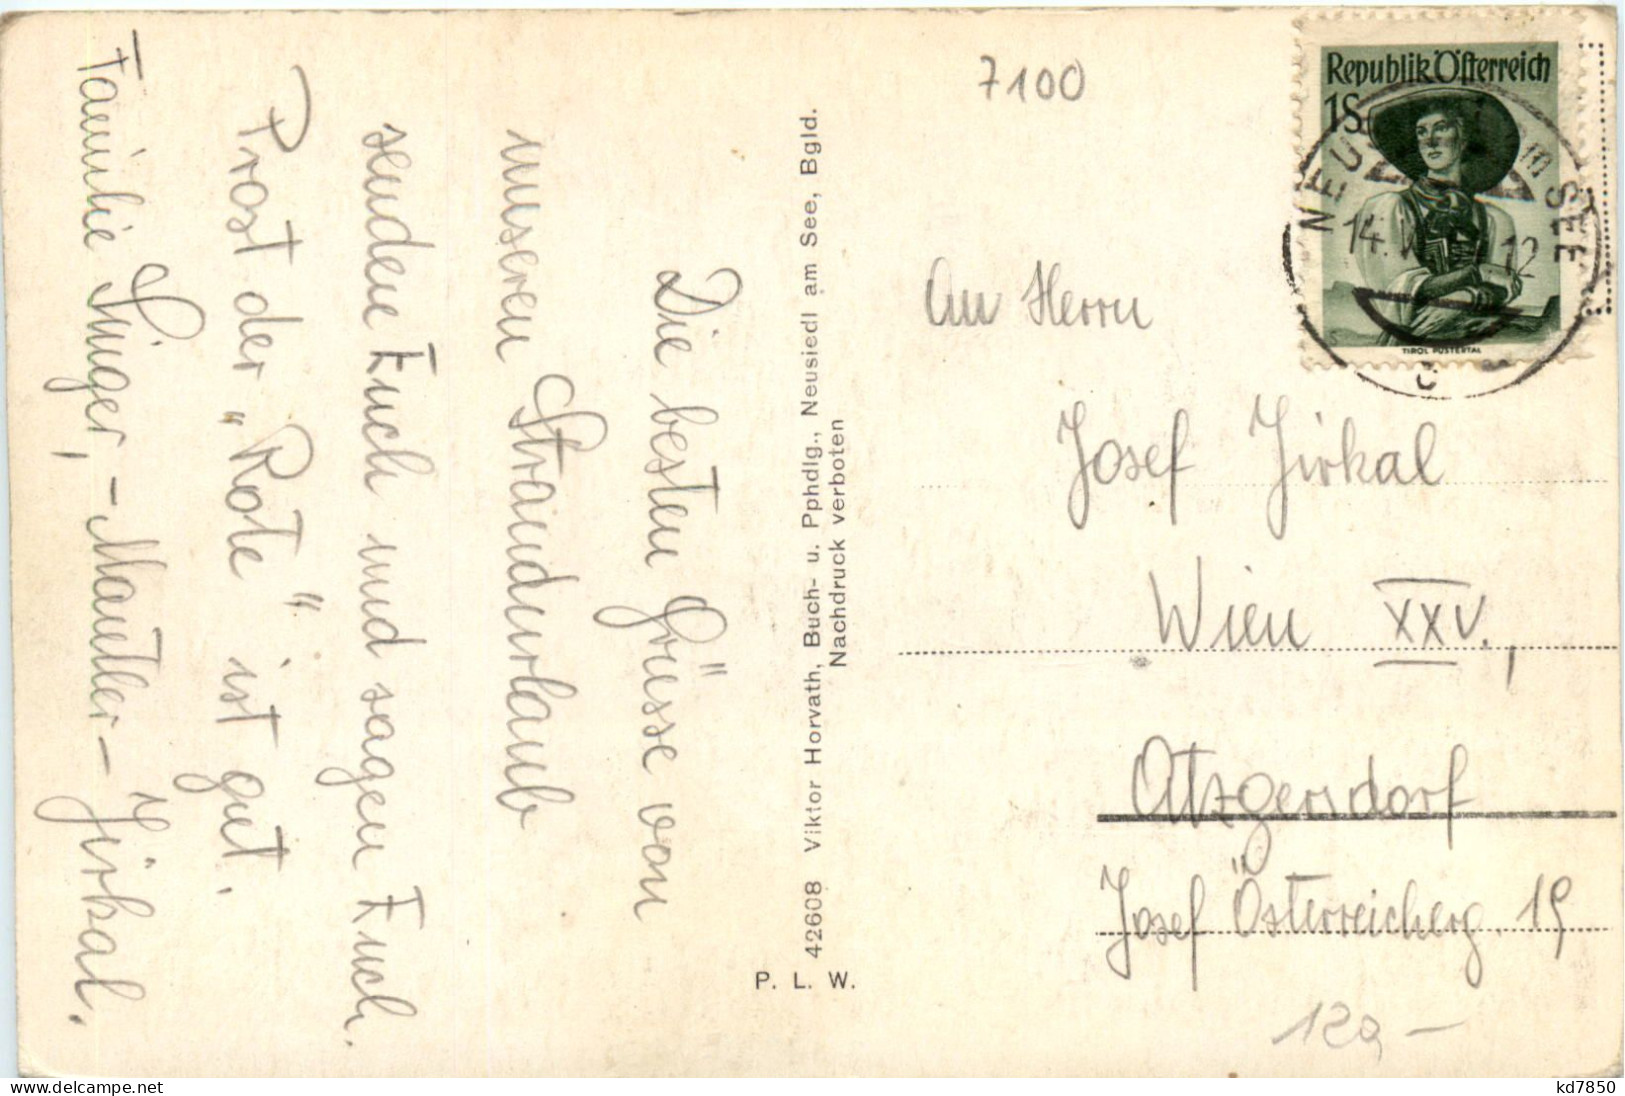 Die besten Grüsse von
unseren Strandurlaub
senden Euch und sagen Euch.
Prost der „Rote“ ist gut.
Familie Singer, - Mautler - Jirkal.
42608 Viktor Horvath, Buch- u. Pphdlg., Neusiedl am See, Bgld.
Nachdruck verboten
P. L. W.
7100
Republik Österreich
1S
TIROL PUSTERTAL
NEUS am SEE
14.V 12
c
An Herrn
Josef Jirkal
Wien XXV.,
Atzgersdorf
Josef Österreicherg. 19
120,-
www.delcampe.net
kd7850